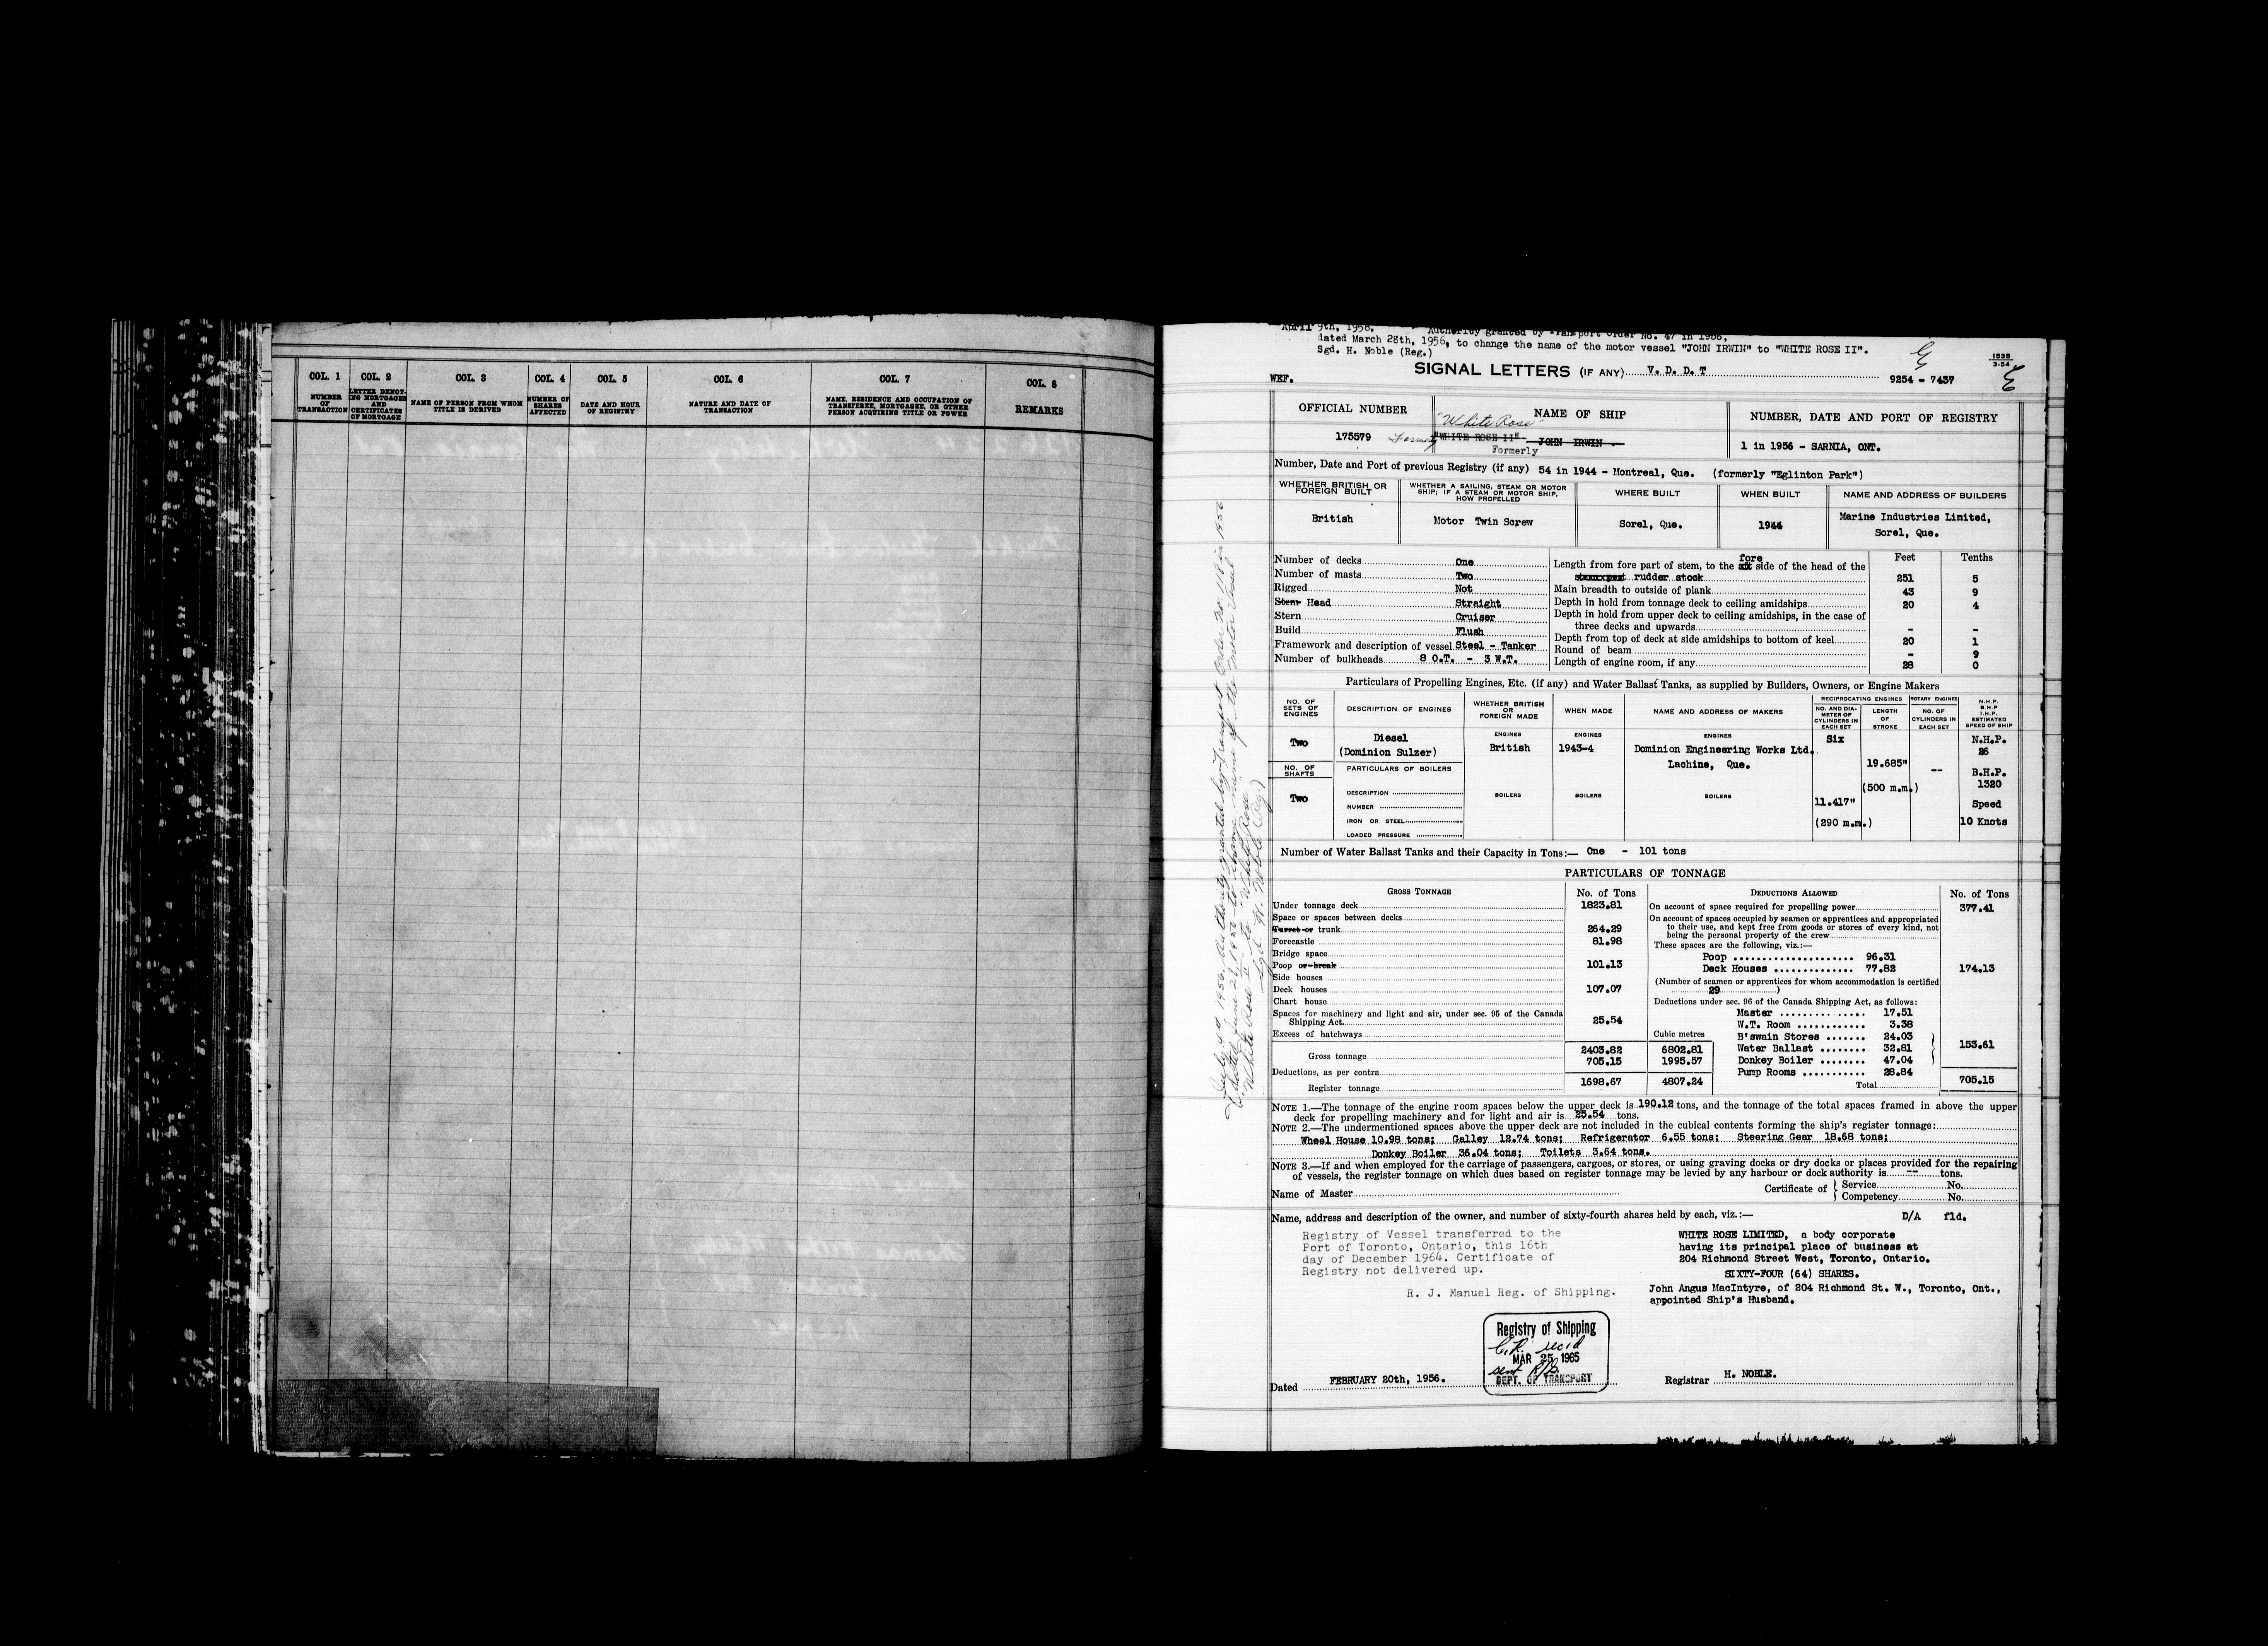 COL. 1 COL. 2 COL. 3 COL. 4 COL. 5 COL. 6 COL. 7 COL. 8
NUMBER OF TRANSACTION
LETTER DENOTING MORTGAGES AND CERTIFICATES OF MORTGAGE
NAME OF PERSON FROM WHOM TITLE IS DERIVED
NUMBER OF SHARES AFFECTED
DATE AND HOUR OF REGISTRY
NATURE AND DATE OF TRANSACTION
NAME, RESIDENCE AND OCCUPATION OF TRANSFEREE, MORTGAGEE, OR OTHER PERSON ACQUIRING TITLE OR POWER
REMARKS
April 9th, 1956. Authority granted by Transport Order No. 47 in 1956,
dated March 28th, 1956, to change the name of the motor vessel "JOHN IRWIN" to "WHITE ROSE II".
Sgd. H. Noble (Reg.)
1535
3-54
WEF. SIGNAL LETTERS (IF ANY) V. D. D. T 9254 - 7437
OFFICIAL NUMBER NAME OF SHIP NUMBER, DATE AND PORT OF REGISTRY
"White Rose"
175579 Formerly "WHITE ROSE II" JOHN IRWIN 1 in 1956 - SARNIA, ONT.
Formerly
Number, Date and Port of previous Registry (if any) 54 in 1944 - Montreal, Que. (formerly "Eglinton Park")
WHETHER BRITISH OR FOREIGN BUILT
WHETHER A SAILING, STEAM OR MOTOR SHIP; IF A STEAM OR MOTOR SHIP, HOW PROPELLED
WHERE BUILT WHEN BUILT NAME AND ADDRESS OF BUILDERS
British Motor Twin Screw Sorel, Que. 1944 Marine Industries Limited,
Sorel, Que.
Number of decks One
Number of masts Two
Rigged Not
Stem Head Straight
Stern Cruiser
Build Flush
Framework and description of vessel Steel - Tanker
Number of bulkheads 8 O.T. - 3 W.T.
Feet Tenths
fore
Length from fore part of stem, to the aft side of the head of the
stern post rudder stock 251 5
Main breadth to outside of plank 43 9
Depth in hold from tonnage deck to ceiling amidships 20 4
Depth in hold from upper deck to ceiling amidships, in the case of
three decks and upwards - -
Depth from top of deck at side amidships to bottom of keel 20 1
Round of beam - 9
Length of engine room, if any 28 0
Particulars of Propelling Engines, Etc. (if any) and Water Ballast Tanks, as supplied by Builders, Owners, or Engine Makers
NO. OF SETS OF ENGINES
DESCRIPTION OF ENGINES
WHETHER BRITISH OR FOREIGN MADE
WHEN MADE
NAME AND ADDRESS OF MAKERS
RECIPROCATING ENGINES ROTARY ENGINES
NO. AND DIAMETER OF CYLINDERS IN EACH SET
LENGTH OF STROKE
NO. OF CYLINDERS IN EACH SET
N.H.P.
B.H.P
I.H.P.
ESTIMATED SPEED OF SHIP
ENGINES ENGINES ENGINES
Two Diesel British 1943-4 Dominion Engineering Works Ltd. Six N.H.P.
(Dominion Sulzer) Lachine, Que. 26
NO. OF SHAFTS PARTICULARS OF BOILERS 19.685" -- B.H.P.
(500 m.m.) 1320
Two DESCRIPTION BOILERS BOILERS BOILERS
NUMBER 11.417" Speed
IRON OR STEEL (290 m.m.) 10 Knots
LOADED PRESSURE
Number of Water Ballast Tanks and their Capacity in Tons:— One - 101 tons
PARTICULARS OF TONNAGE
GROSS TONNAGE No. of Tons
Under tonnage deck 1823.81
Space or spaces between decks
Turret or trunk 264.29
Forecastle 81.98
Bridge space
Poop or break 101.13
Side houses
Deck houses 107.07
Chart house
Spaces for machinery and light and air, under sec. 95 of the Canada
Shipping Act. 25.54
Excess of hatchways Cubic metres
Gross tonnage 2403.82 6802.81
Deductions, as per contra 705.15 1995.57
Register tonnage 1698.67 4807.24
DEDUCTIONS ALLOWED No. of Tons
On account of space required for propelling power 377.41
On account of spaces occupied by seamen or apprentices and appropriated
to their use, and kept free from goods or stores of every kind, not
being the personal property of the crew
These spaces are the following, viz.:—
Poop 96.31
Deck Houses 77.82 174.13
(Number of seamen or apprentices for whom accommodation is certified
29 )
Deductions under sec. 96 of the Canada Shipping Act, as follows:
Master 17.51
W.T. Room 3.38
B'swain Stores 24.03
Water Ballast 32.81 153.61
Donkey Boiler 47.04
Pump Rooms 28.84
Total 705.15
NOTE 1.—The tonnage of the engine room spaces below the upper deck is 190.12 tons, and the tonnage of the total spaces framed in above the upper
deck for propelling machinery and for light and air is 25.54 tons.
NOTE 2.—The undermentioned spaces above the upper deck are not included in the cubical contents forming the ship's register tonnage:
Wheel House 10.98 tons; Galley 12.74 tons; Refrigerator 6.55 tons; Steering Gear 18.68 tons;
Donkey Boiler 36.04 tons; Toilets 3.64 tons.
NOTE 3.—If and when employed for the carriage of passengers, cargoes, or stores, or using graving docks or dry docks or places provided for the repairing
of vessels, the register tonnage on which dues based on register tonnage may be levied by any harbour or dock authority is -- tons.
Name of Master Certificate of Service No.
Competency No.
Name, address and description of the owner, and number of sixty-fourth shares held by each, viz.:— D/A fld.
Registry of Vessel transferred to the
Port of Toronto, Ontario, this 16th
day of December 1964. Certificate of
Registry not delivered up.
R. J. Manuel Reg. of Shipping.
WHITE ROSE LIMITED, a body corporate
having its principal place of business at
204 Richmond Street West, Toronto, Ontario.
SIXTY-FOUR (64) SHARES.
John Angus MacIntyre, of 204 Richmond St. W., Toronto, Ont.,
appointed Ship's Husband.
Registry of Shipping
C.R. rec'd
MAR 25 1965
sent
DEPT. OF TRANSPORT
Dated FEBRUARY 20th, 1956. Registrar H. NOBLE.
July 4th 1956. Authority granted by Transport Order No. 118 in 1956
dated June 29, 1956 to change name of the Motor Vessel
"White Rose II" to "White Rose"
Sgd. H. Noble (Reg)